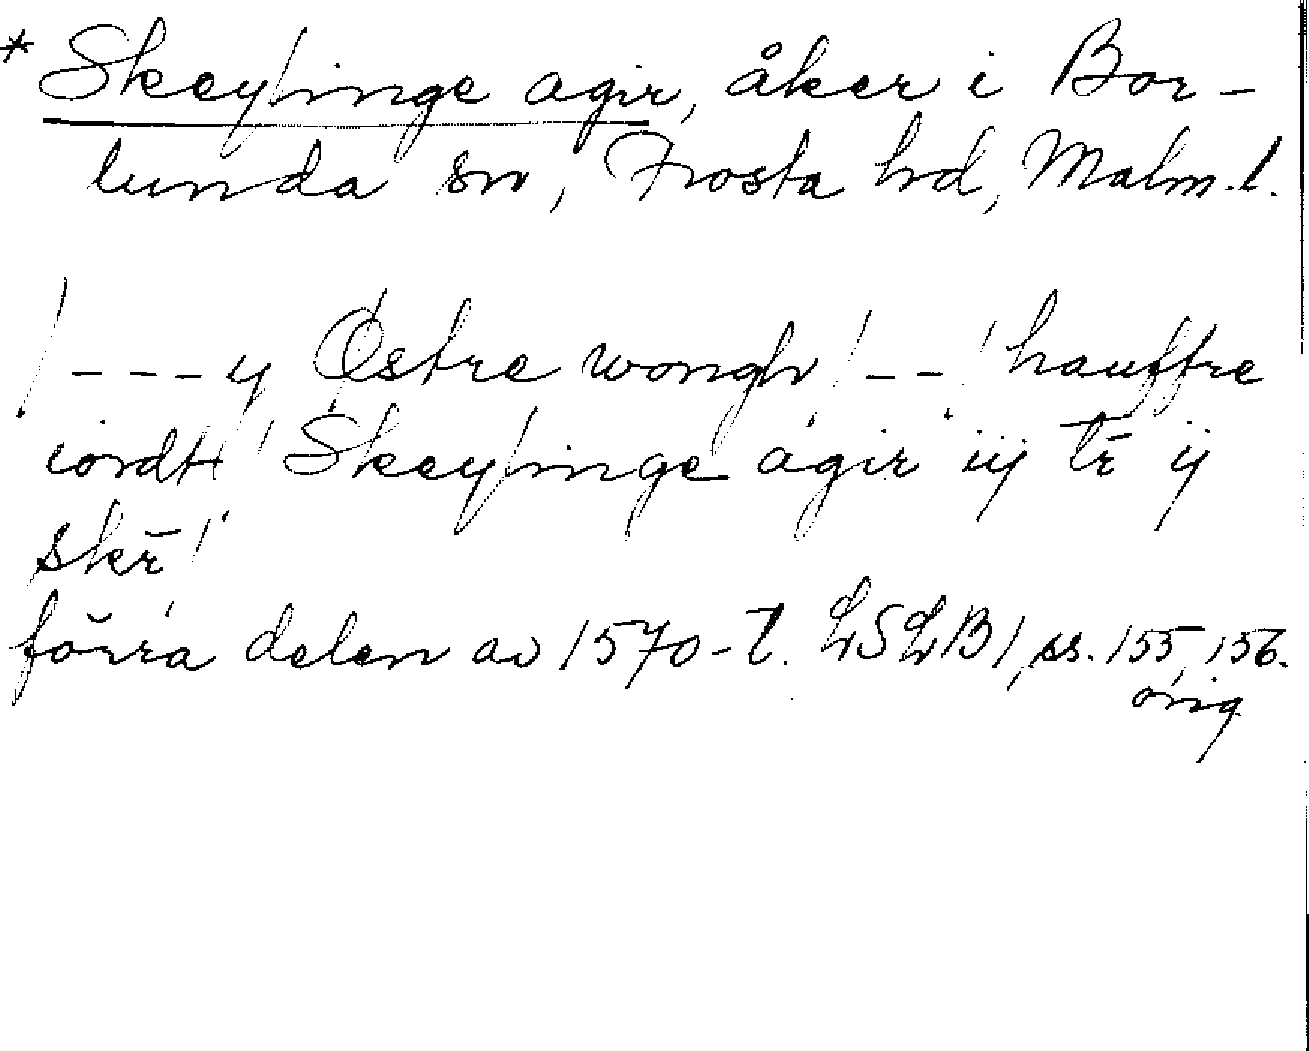 * Skeyfringe agir, åker i Bor-
lunda sn, Frosta hd, Malm.l.
/---y Østre wongh /--/ hauffre
iordt / Skeyfringe agir iij tr̄ ij
skr̄ /
förra delen av 1570-t. LSLB 1, ss. 155, 156.
orig